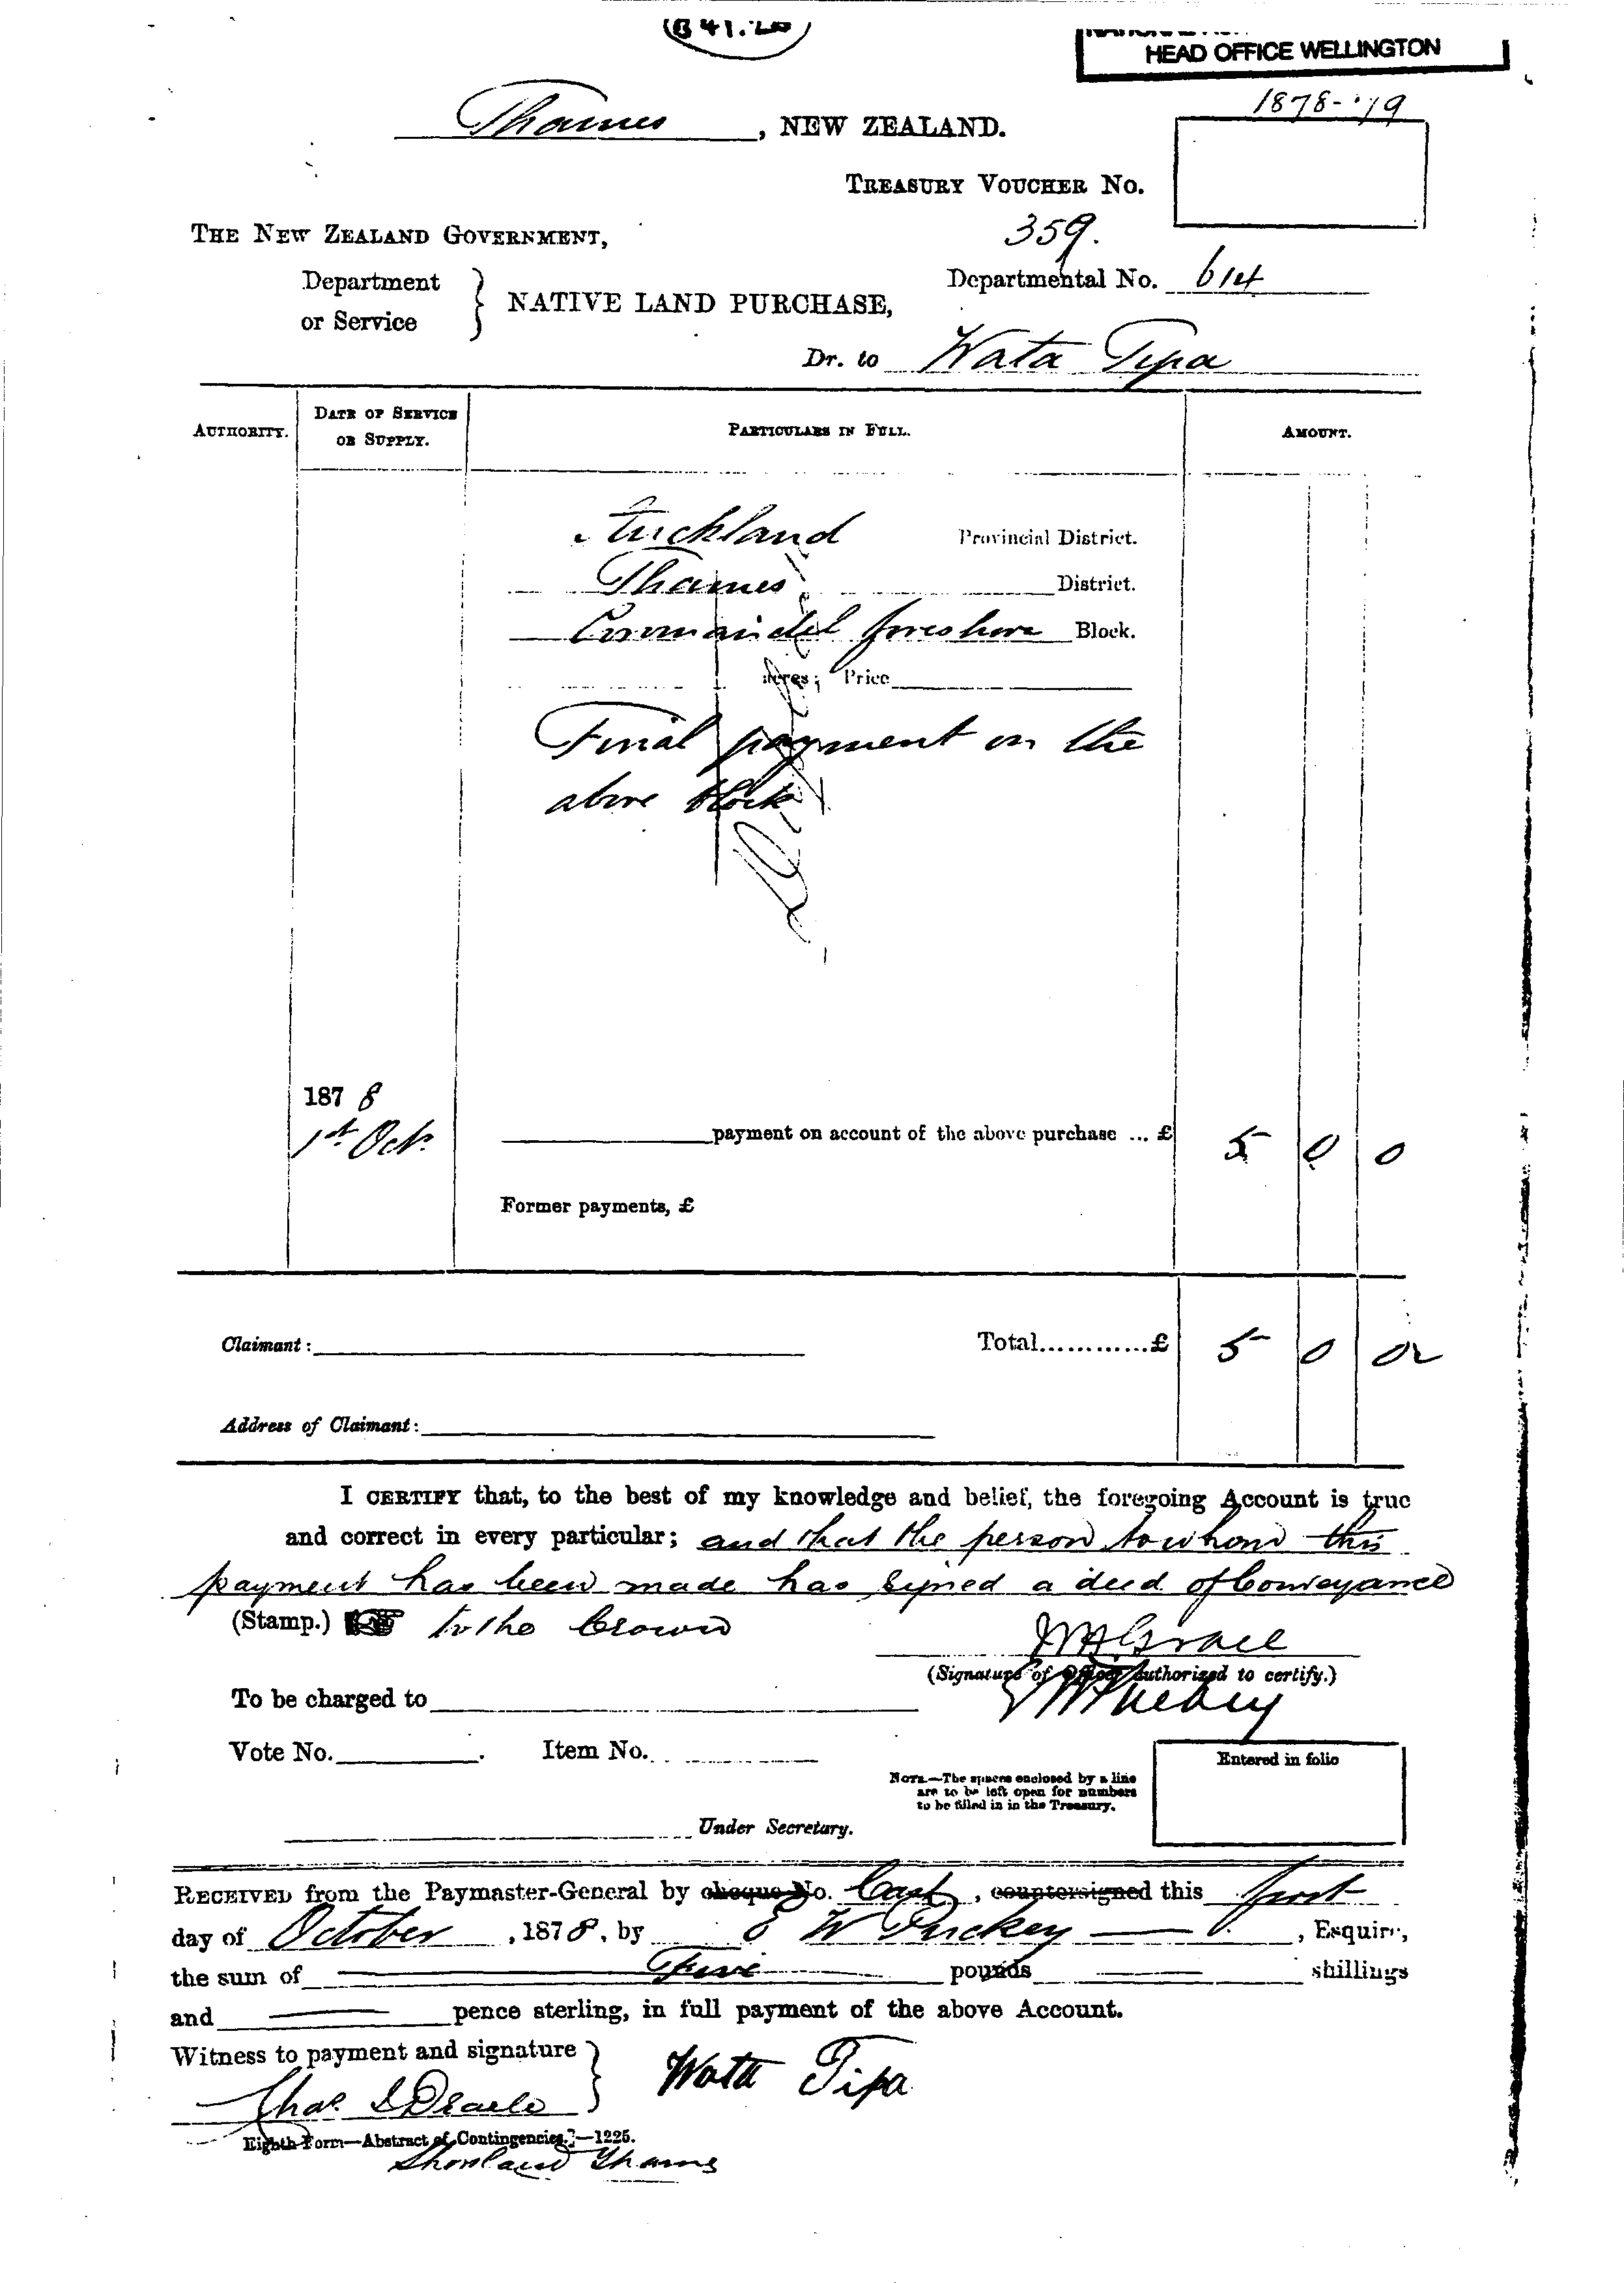 B 41.20
HEAD OFFICE WELLINGTON
1878-'79
Thames, NEW ZEALAND.
TREASURY VOUCHER No.
359.
THE NEW ZEALAND GOVERNMENT,
Departmental No. 614
Department or Service } NATIVE LAND PURCHASE,
Dr. to Wata Tipa
AUTHORITY. DATE OF SERVICE OR SUPPLY. PARTICULARS IN FULL. AMOUNT.
Auckland Provincial District.
Thames District.
Coromandel foreshore Block.
Acres; Price
Final payment on the
above block
1878
1st Oct. payment on account of the above purchase ... £ 5 0 0
Former payments, £
Claimant: Total............£ 5 0 0
Address of Claimant:
I CERTIFY that, to the best of my knowledge and belief, the foregoing Account is true
and correct in every particular; and that the person to whom this
payment has been made has signed a deed of Conveyance
(Stamp.) to the Crown
(Signature of Officer authorized to certify.)
To be charged to
E W Puckey
Vote No. . Item No.
Entered in folio
NOTE.—The spaces enclosed by a line
are to be left open for numbers
to be filled in in the Treasury.
Under Secretary.
RECEIVED from the Paymaster-General by cheque No. Cash, countersigned this first
day of October, 1878, by E W Puckey, Esquire,
the sum of Five pounds shillings
and pence sterling, in full payment of the above Account.
Witness to payment and signature }
Wata Tipa
Eighth Form—Abstract of Contingencies.—1225.
Shortland Thames